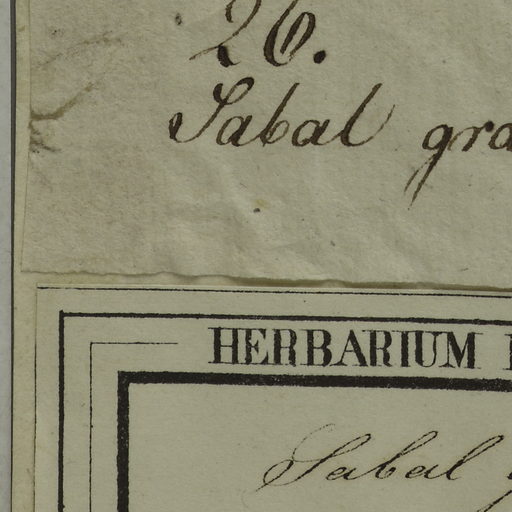 26.
Sabal gra
HERBARIUM
Sabal